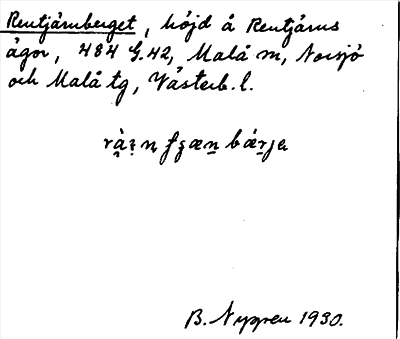 Rentjärnberget, höjd å Rentjärns
ägor, 484 G.42, Malå sn, Norsjö
och Malå tg, Västerb. l.
B. Nygren 1930.